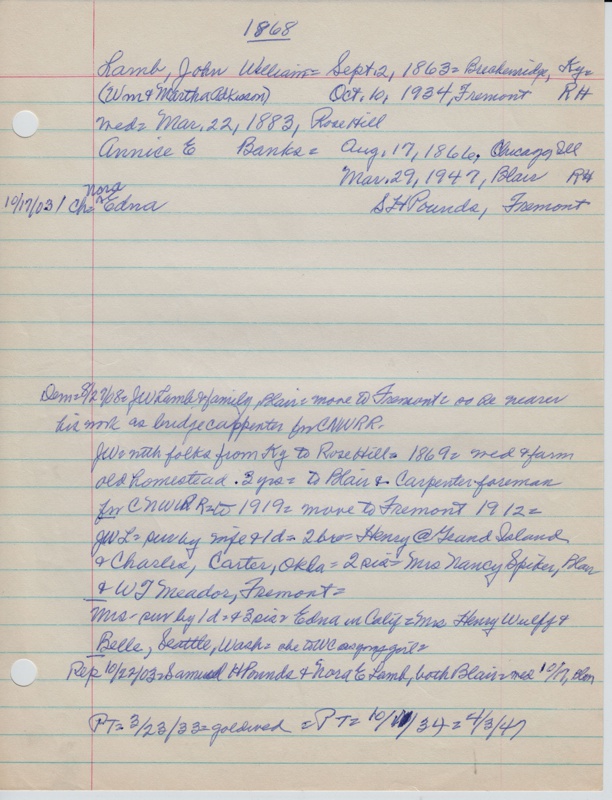 1868
Lamb, John William = Sept. 2, 1863 = Breckenridge, Ky =
(Wm & Martha Adkisson) Oct. 10, 1934, Fremont RH
med = Mar. 22, 1883, Rose Hill
Annice E Banks = Aug. 17, 1866, Chicago, Ill
Mar. 29, 1947, Blair RH
Nora
10/17/03 / Ch = ^ Edna S H Pounds, Fremont
Dem = 8/27/08 = JW Lamb & family, Blair = move to Fremont = so be nearer
his work as bridge carpenter for CNWRR =
JW = with folks from Ky to Rose Hill = 1869 = med & farm
old homestead . 2 yrs = to Blair & Carpenter foreman
for CNWRR = to 1919 = move to Fremont 1912 =
JWL = sur by wife & 1d = 2 bro = Henry @ Grand Island
& Charlie, Carter, Okla = 2 sis = Mrs Nancy Spiker, Blair
& WT Meador, Fremont =
Mrs = sur by 1d = & 3 sis = Edna in Calif = Mrs Henry Wulff &
Belle, Seattle, Wash = she to WC as young girl =
Rep 10/22/03 = Samuel H Pounds & Nora E Lamb, both Blair = med 10/17,
PT = 3/23/33 = golded = PT = 10/11/34 = 4/3/47